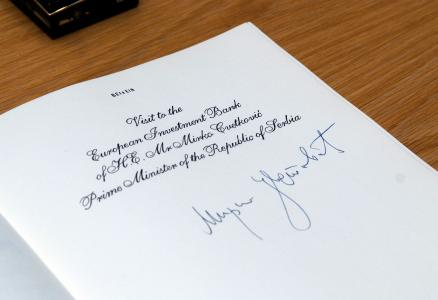 Visit to the
European Investment Bank
of H.E. Mr Mirko Cvetković
Prime Minister of the Republic of Serbia